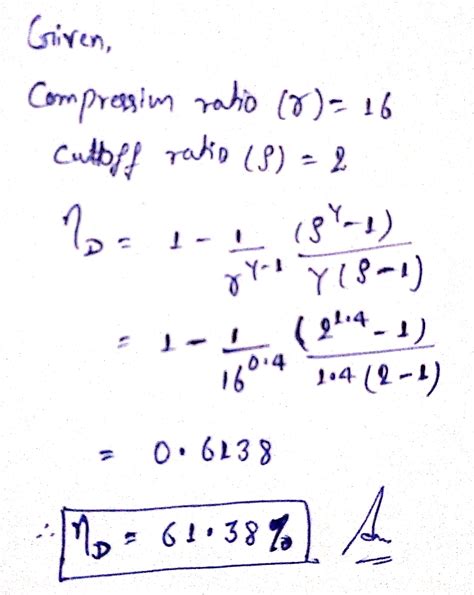 Given,
Compression ratio (r) = 16
Cuttoff ratio (ρ) = 2
η_D = 1 - 1/r^(γ-1) (ρ^γ - 1)/γ(ρ-1)
= 1 - 1/16^0.4 (2^1.4 - 1)/1.4(2-1)
= 0.6138
∴ η_D = 61.38 % Ans